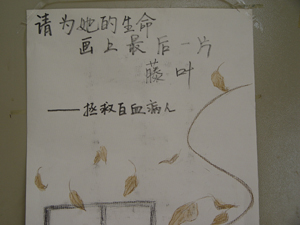 请为她的生命
画上最后一片
藤叶
——拯救白血病人